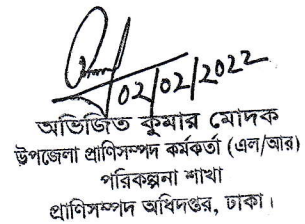 02/02/2022
অভিজিত কুমার মোদক
উপজেলা প্রাণিসম্পদ কর্মকর্তা (এল/আর)
পরিকল্পনা শাখা
প্রাণিসম্পদ অধিদপ্তর, ঢাকা।